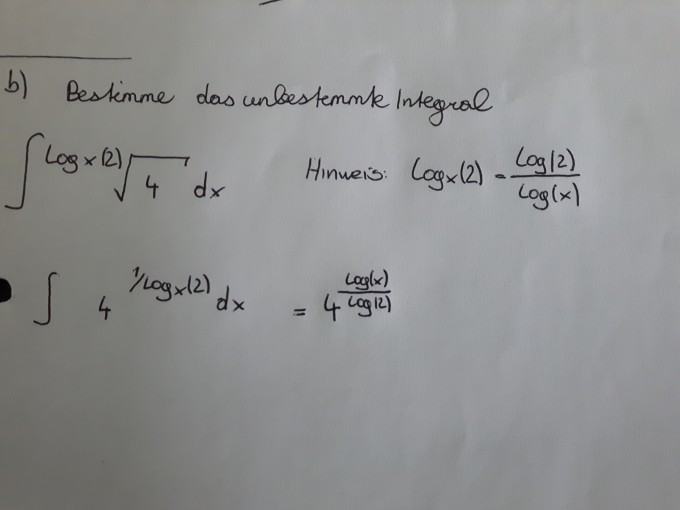 b) Bestimme das unbestemmte Integral
∫ Logx(2)√4 dx Hinweis: Logx(2) = Log(2)/Log(x)
∫ 4^(1/Logx(2)) dx = 4^(Log(x)/Log(2))